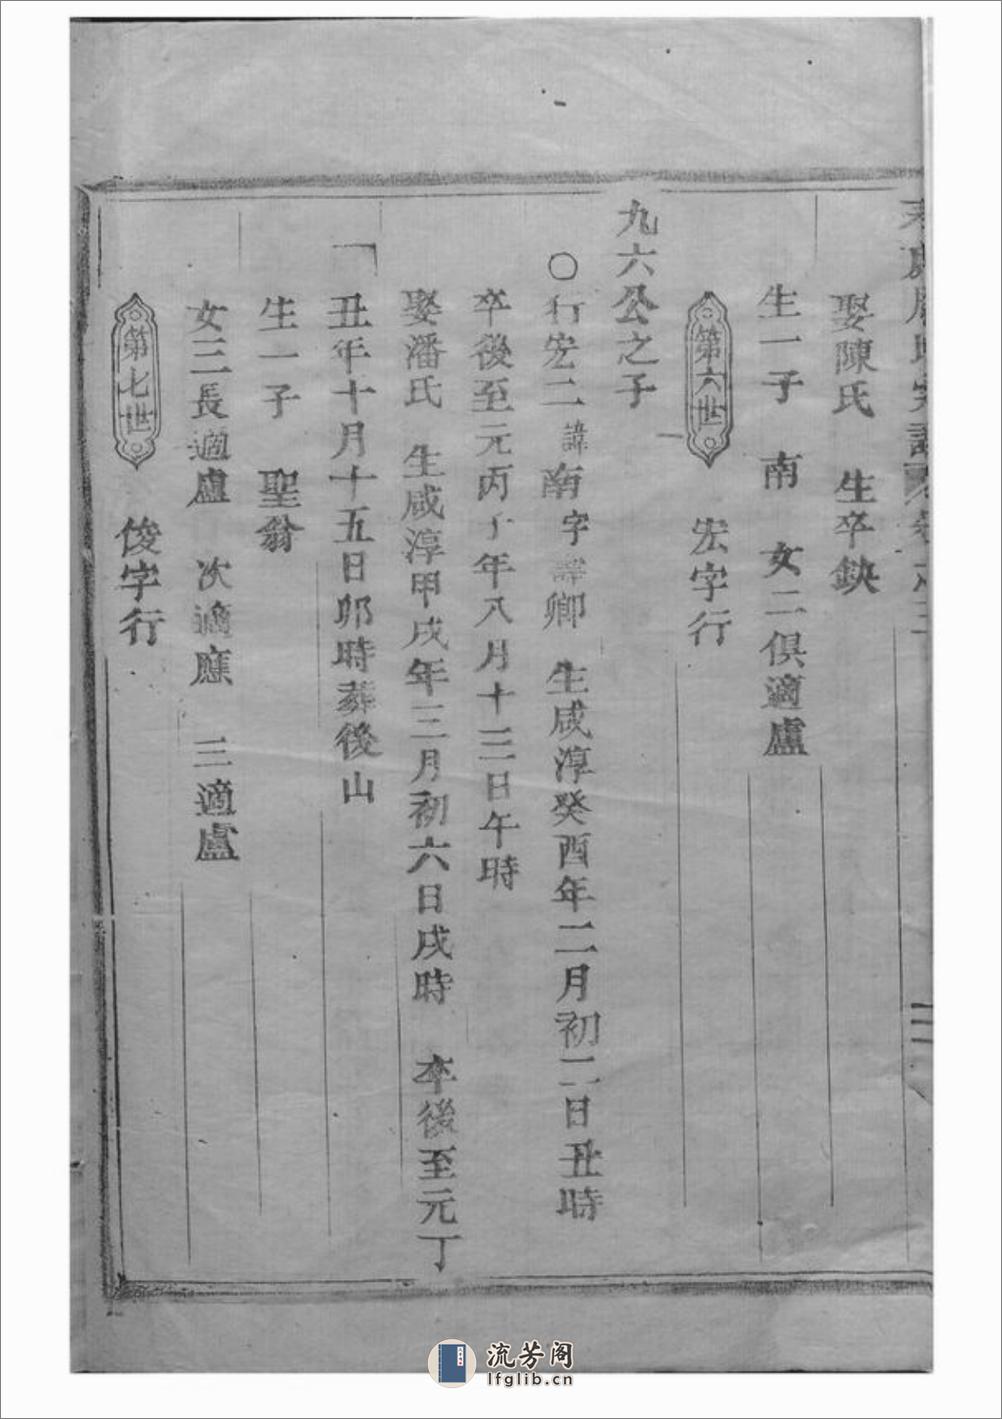 娶陳氏　生卒缺
生一子　南　女二俱適盧
第六世　宏字行
九六公之子
〇行宏二諱南字諱卿　生咸淳癸酉年二月初二日丑時
卒後至元丙子年八月十三日午時
娶潘氏　生咸淳甲戌年三月初六日戌時　卒後至元丁
丑年十月十五日卯時葬後山
生一子　聖翁
女三長適盧　次適應　三適盧
第七世　俊字行
流芳阁
lfglib.cn